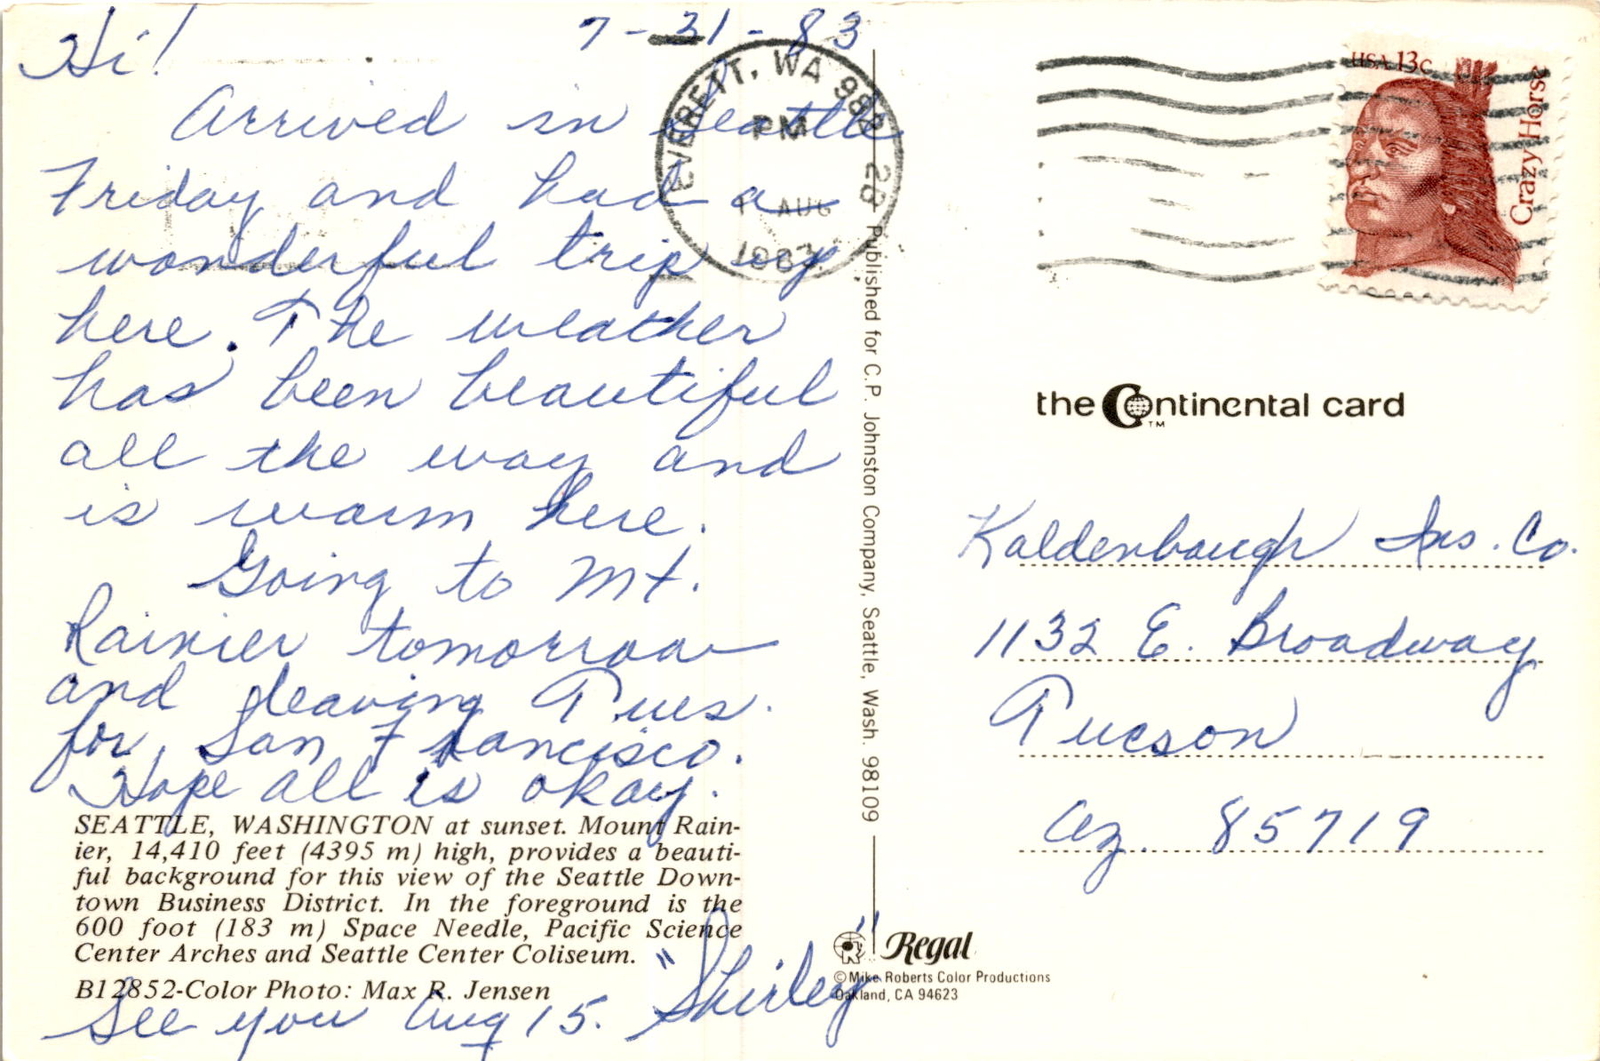 7-31-83
Hi!
Arrived in Seattle
Friday and had a
wonderful trip up
here. The weather
has been beautiful
all the way and
is warm here.
Going to Mt.
Rainier tomorrow
and leaving Tues.
for San Francisco.
Hope all is okay.
SEATTLE, WASHINGTON at sunset. Mount Rain-
ier, 14,410 feet (4395 m) high, provides a beauti-
ful background for this view of the Seattle Down-
town Business District. In the foreground is the
600 foot (183 m) Space Needle, Pacific Science
Center Arches and Seattle Center Coliseum.
B12852-Color Photo: Max R. Jensen
See you Aug 15. "Shirley"
EVERETT, WA 982 28
PM
1 AUG
1983
Published for C.P. Johnston Company, Seattle, Wash. 98109
USA 13c
Crazy Horse
the Continental card
TM
Kaldenbaugh Ins. Co.
1132 E. Broadway
Tucson
Az. 85719
Regal
© Mike Roberts Color Productions
Oakland, CA 94623